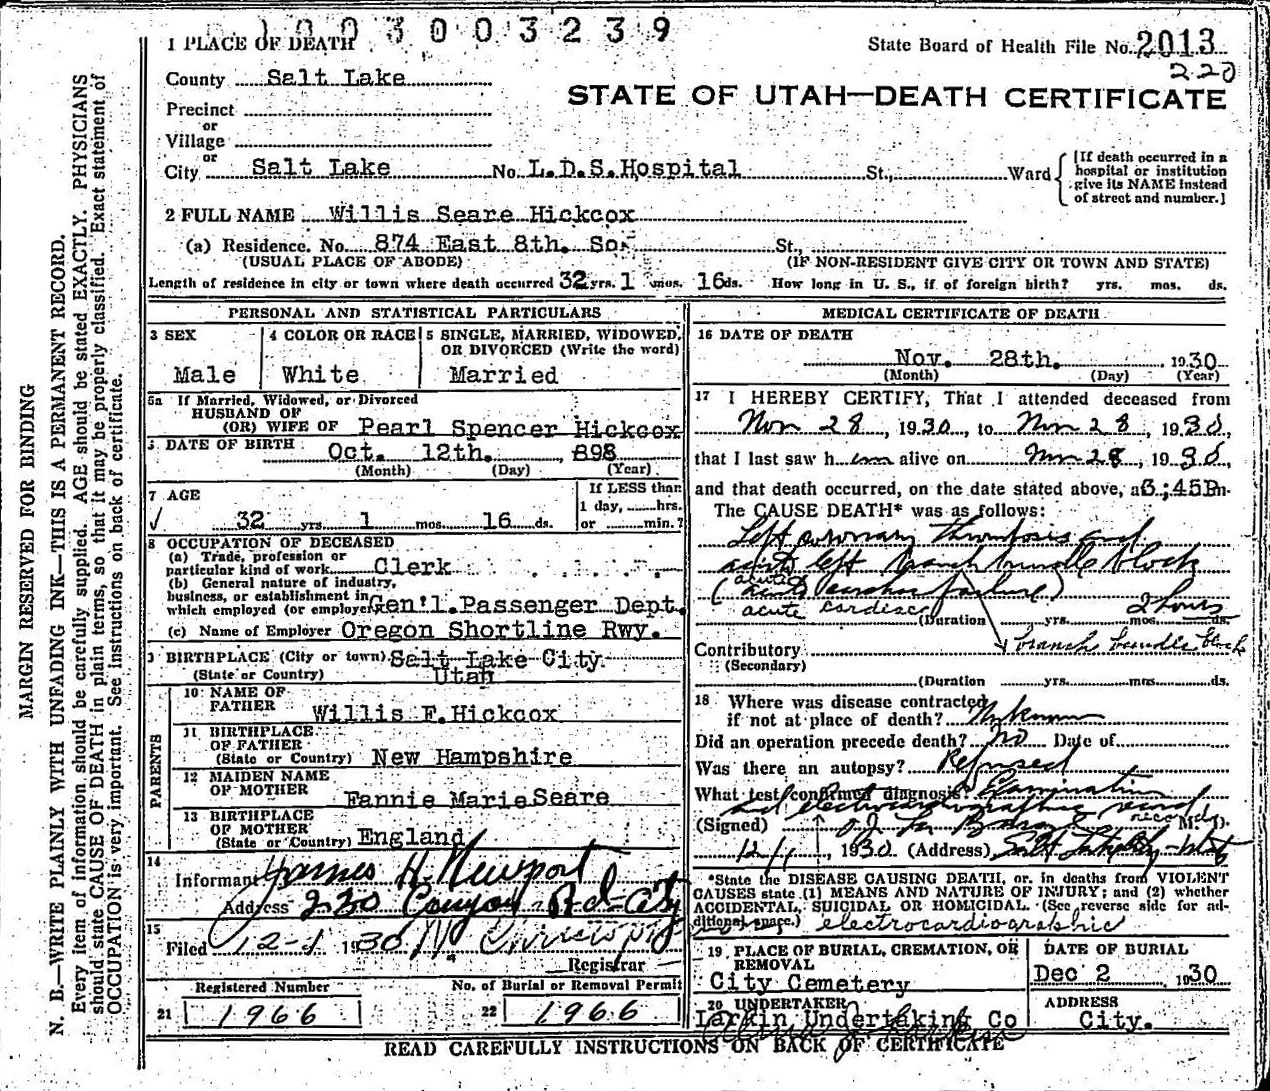 1003003239
1 PLACE OF DEATH
State Board of Health File No. 2013
220
County Salt Lake
STATE OF UTAH—DEATH CERTIFICATE
Precinct
or
Village
or
City Salt Lake No. L.D.S. Hospital St., Ward
[If death occurred in a hospital or institution give its NAME instead of street and number.]
2 FULL NAME Willis Seare Hickcox
(a) Residence. No. 874 East 8th. So. St.,
(USUAL PLACE OF ABODE) (IF NON-RESIDENT GIVE CITY OR TOWN AND STATE)
Length of residence in city or town where death occurred 32 yrs. 1 mos. 16 ds. How long in U. S., if of foreign birth? yrs. mos. ds.
MARGIN RESERVED FOR BINDING
N. B.—WRITE PLAINLY WITH UNFADING INK—THIS IS A PERMANENT RECORD.
Every item of information should be carefully supplied. AGE should be stated EXACTLY. PHYSICIANS
should state CAUSE OF DEATH in plain terms, so that it may be properly classified. Exact statement of
OCCUPATION is very important. See instructions on back of certificate.
PERSONAL AND STATISTICAL PARTICULARS
3 SEX
Male
4 COLOR OR RACE
White
5 SINGLE, MARRIED, WIDOWED,
OR DIVORCED (Write the word)
Married
5a If Married, Widowed, or Divorced
HUSBAND OF
(OR) WIFE OF Pearl Spencer Hickcox
DATE OF BIRTH Oct. 12th. , 898
(Month) (Day) (Year)
7 AGE
32 yrs 1 mos. 16 ds.
If LESS than
1 day, hrs.
or min.?
8 OCCUPATION OF DECEASED
(a) Trade, profession or
particular kind of work Clerk
(b) General nature of industry,
business, or establishment in
which employed (or employer) Gen'l. Passenger Dept.
(c) Name of Employer Oregon Shortline Rwy.
BIRTHPLACE (City or town) Salt Lake City
(State or Country) Utah
PARENTS
10 NAME OF
FATHER Willis F. Hickcox
11 BIRTHPLACE
OF FATHER
(State or Country) New Hampshire
12 MAIDEN NAME
OF MOTHER Fannie Marie Seare
13 BIRTHPLACE
OF MOTHER
(State or Country) England
14
Informant James H. Newport
Address 230 Canyon Rd-City
15
Filed 12-1 1930
Registrar
Registered Number
21 1966
No. of Burial or Removal Permit
22 1966
MEDICAL CERTIFICATE OF DEATH
16 DATE OF DEATH
Nov. 28th. 1930
(Month) (Day) (Year)
17 I HEREBY CERTIFY, That I attended deceased from
Nov 28, 1930, to Nov 28, 1930,
that I last saw him alive on Nov 28, 1930,
and that death occurred, on the date stated above, at 3;45P m.
The CAUSE DEATH* was as follows:
Left coronary thrombosis and
acute left branch bundle block
acute
acute cardiac
(Duration yrs. mos. ds. 2 hours
Contributory branch bundle block
(Secondary)
(Duration yrs. mos. ds.
18 Where was disease contracted
if not at place of death? Unknown
Did an operation precede death? no Date of
Was there an autopsy? Refused
What test confirmed diagnosis? Examination
and electrocardiographic record
records
(Signed) M. D.
12/1, 1930 (Address) Salt Lake City - Utah
*State the DISEASE CAUSING DEATH, or, in deaths from VIOLENT
CAUSES state (1) MEANS AND NATURE OF INJURY; and (2) whether
ACCIDENTAL, SUICIDAL OR HOMICIDAL. (See reverse side for ad-
ditional space.) electrocardiographic
19 PLACE OF BURIAL, CREMATION, OR
REMOVAL
City Cemetery
DATE OF BURIAL
Dec 2 1930
20 UNDERTAKER
Larkin Undertaking Co
ADDRESS
City.
READ CAREFULLY INSTRUCTIONS ON BACK OF CERTIFICATE